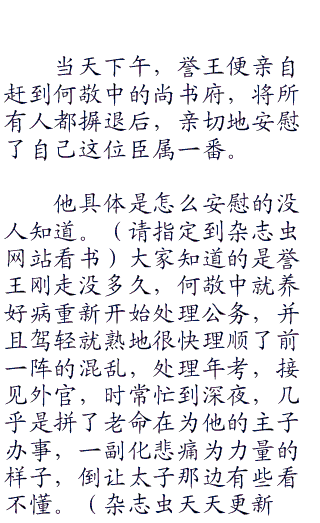 当天下午，誉王便亲自
赶到何敬中的尚书府，将所
有人都摒退后，亲切地安慰
了自己这位臣属一番。
他具体是怎么安慰的没
人知道。（请指定到杂志虫
网站看书）大家知道的是誉
王刚走没多久，何敬中就养
好病重新开始处理公务，并
且驾轻就熟地很快理顺了前
一阵的混乱，处理年考，接
见外官，时常忙到深夜，几
乎是拼了老命在为他的主子
办事，一副化悲痛为力量的
样子，倒让太子那边有些看
不懂。（杂志虫天天更新